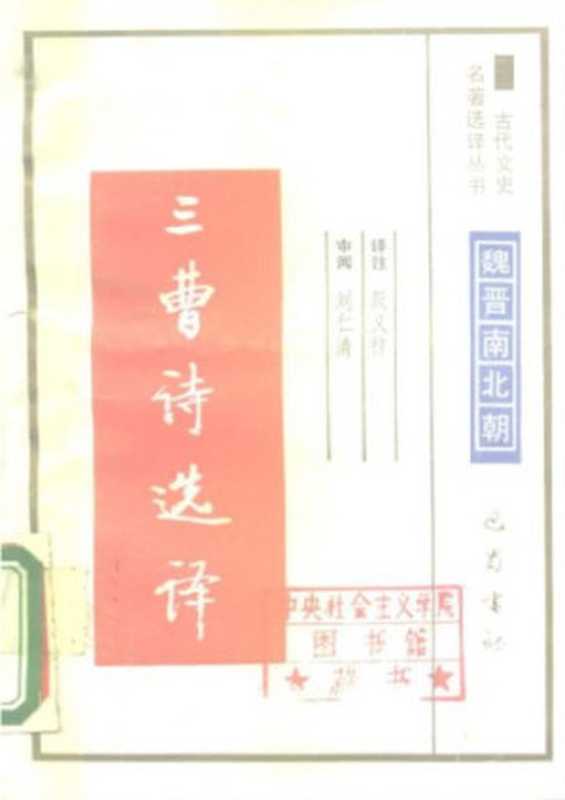 古代文史
名著选译丛书
魏晋南北朝
巴蜀书社
译注 殷义祥
审阅 刘仁清
三曹诗选译
中央社会主义学院
图书馆
藏书